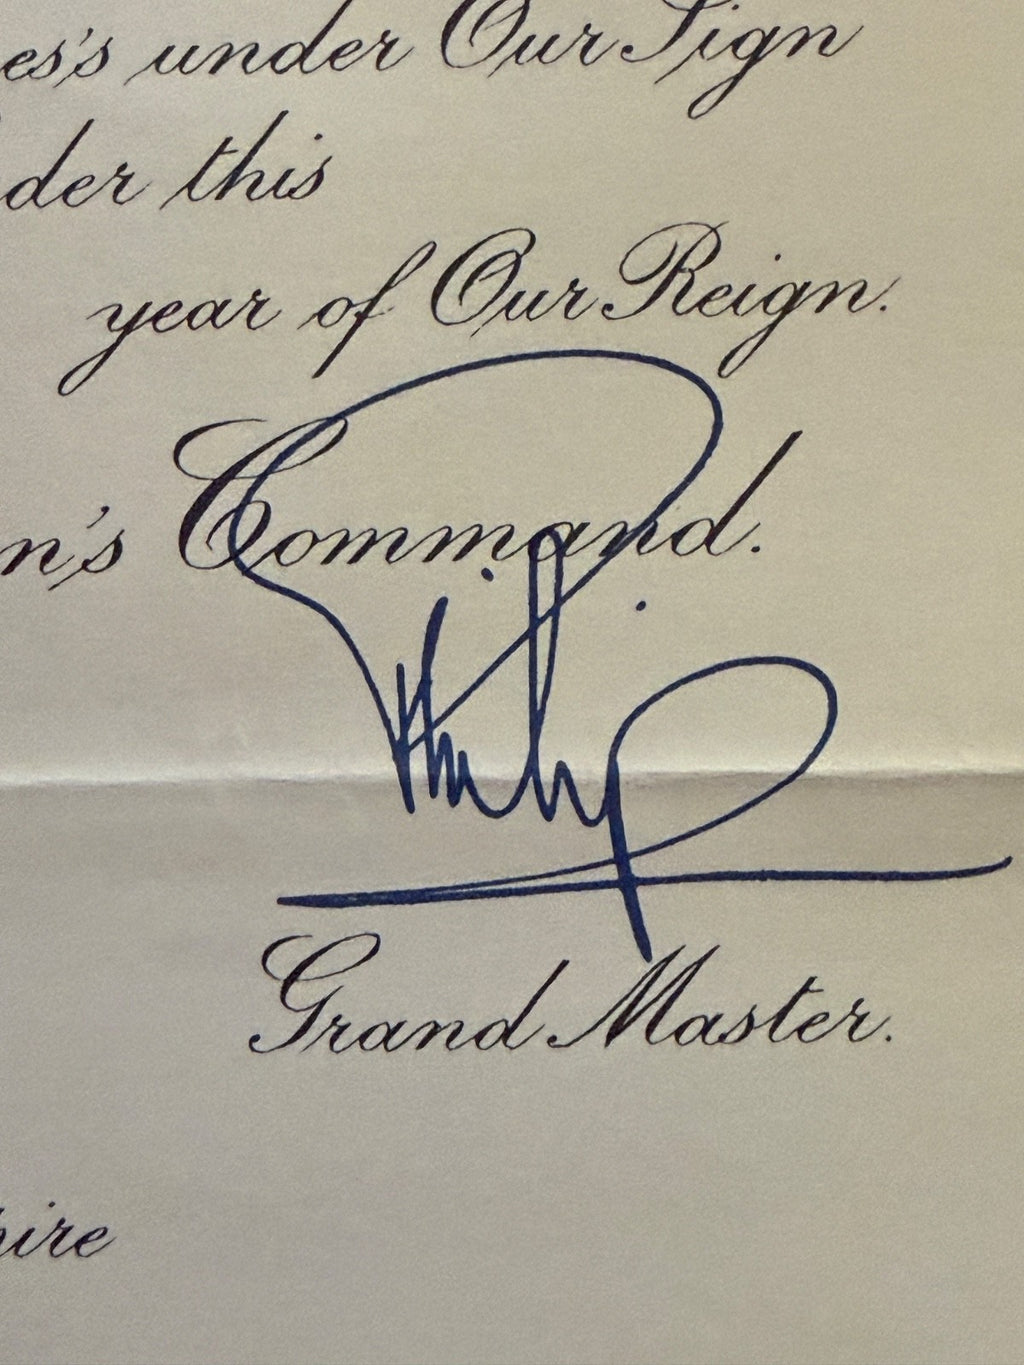 es's under Our Sign
der this
year of Our Reign.
n's Command.
Philip
Grand Master.
ire